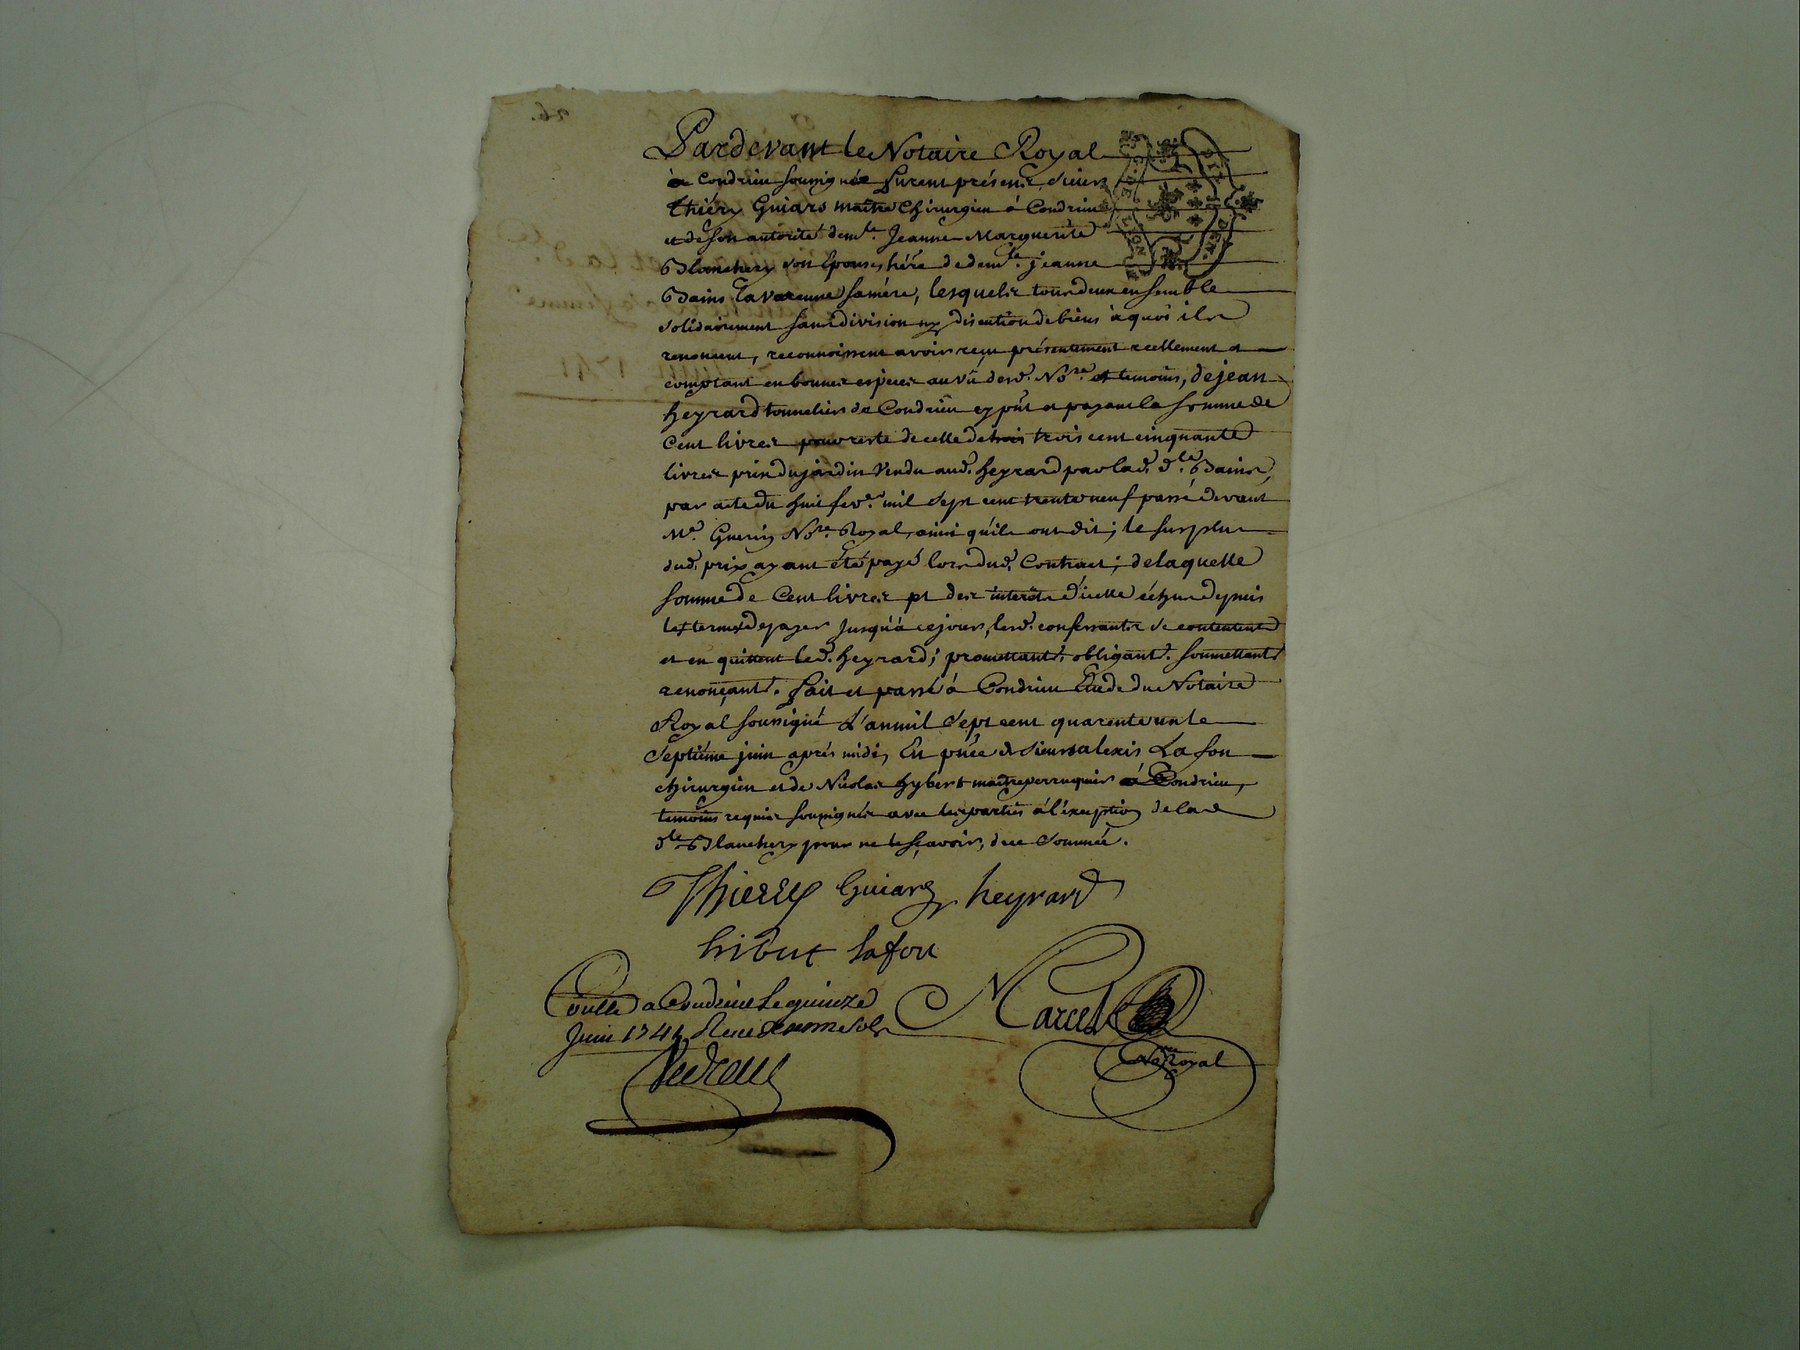 Pardevant le Notaire Royal
à Condrieu soussigné furent présens, sieur
thiéry Guiard maitre Chirurgien à Condrieu
et de son autorité demlle. Jeanne Marguerite
Blanchery son Epouse, hére de demlle. jeanne
Bains Lavarenne sa mére, lesquels tous deux ensemble
solidairement sans division ny discution de biens à quoi ils
renoncent, reconnoissent avoir reçu présentement reellement et
comptant en bonnes espéces au vû desd. Nore. et temoins, de jean
heyrard tonnelier de Condrieu cy pnt et payant la somme de
Cent livres pour reste de celle de trois cent cinquante
livres prix du jardin vendu aud. heyrard par lad. dlle. Bains,
par acte du huit fevr. mil sept cent trente neuf passé devant
Me. Guerin Nore. Royal, ainsi qu'ils ont dit; le surplus
dud. prix ayant été payé lors dud. Contract; de laquelle
somme de Cent livres et des interéts d'icelle échus depuis
le terme de payer jusqu'à ce jour, lesd. confessants se contentent
et en quittent led. heyrard; promettants, obligants. soumettants
renonçants. fait et passé à Condrieu Etude du Notaire
Royal soussigné L'an mil sept cent quarante un le
septiéme juin aprés midi, En pnce de sieurs alexis Lafon
chirurgien et de Nicolas hybert maitre perruquier à Condrieu,
temoins requis soussignés avec les parties à l'exception de lad
dlle. Blanchery pour ne le sçavoir, de ce sommée.
Thierry Guiard heyrard
hibert lafon
Conllé a Condrieu le quinze
Juin 1741 Recu sols
Marcel
Nore Royal